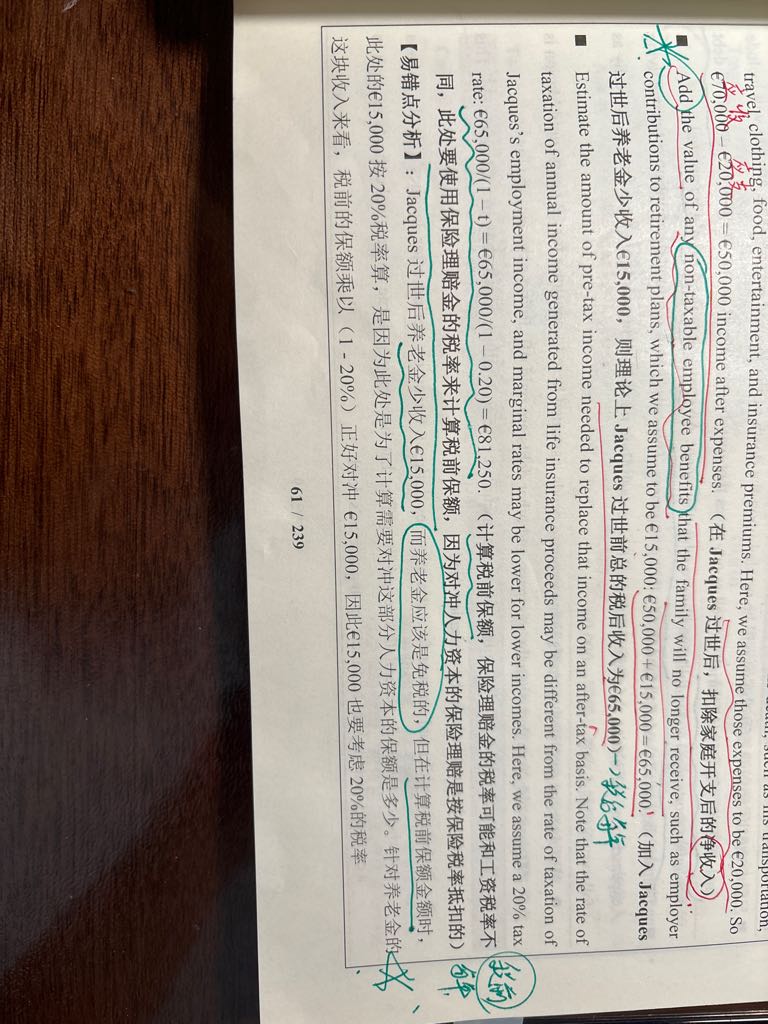 death, such as his transportation,
travel, clothing, food, entertainment, and insurance premiums. Here, we assume those expenses to be €20,000. So
应收 应支
€70,000 – €20,000 = €50,000 income after expenses. （在 Jacques 过世后，扣除家庭开支后的净收入）
■ Add the value of any non-taxable employee benefits that the family will no longer receive, such as employer
contributions to retirement plans, which we assume to be €15,000: €50,000 + €15,000 = €65,000. （加入 Jacques
过世后养老金少收入€15,000，则理论上 Jacques 过世前总的税后收入为€65,000） → 税后年
■ Estimate the amount of pre-tax income needed to replace that income on an after-tax basis. Note that the rate of
taxation of annual income generated from life insurance proceeds may be different from the rate of taxation of
Jacques's employment income, and marginal rates may be lower for lower incomes. Here, we assume a 20% tax
rate: €65,000/(1 – t) = €65,000/(1 – 0.20) = €81,250. （计算税前保额，保险理赔金的税率可能和工资税率不
税前
年
同，此处要使用保险理赔金的税率来计算税前保额，因为对冲人力资本的保险理赔是按保险税率抵扣的）
【易错点分析】：Jacques 过世后养老金少收入€15,000，而养老金应该是免税的，但在计算税前保额金额时，
此处的€15,000 按 20%税率算，是因为此处是为了计算需要对冲这部分人力资本的保额是多少。针对养老金的
这块收入来看，税前的保额乘以（1 - 20%）正好对冲 €15,000，因此€15,000 也要考虑 20%的税率
61 / 239